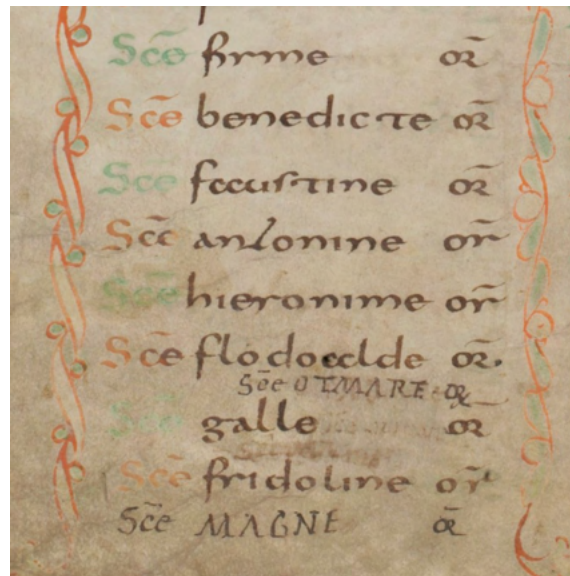 Scē firme or̄
Scē benedicte or̄
Scē faustine or̄
Scē antonine or̄
Scē hieronime or̄
Scē flodoalde or̄.
Scē OTMARE or̄
Scē galle or̄
Scē fridoline or̄
Scē MAGNE or̄